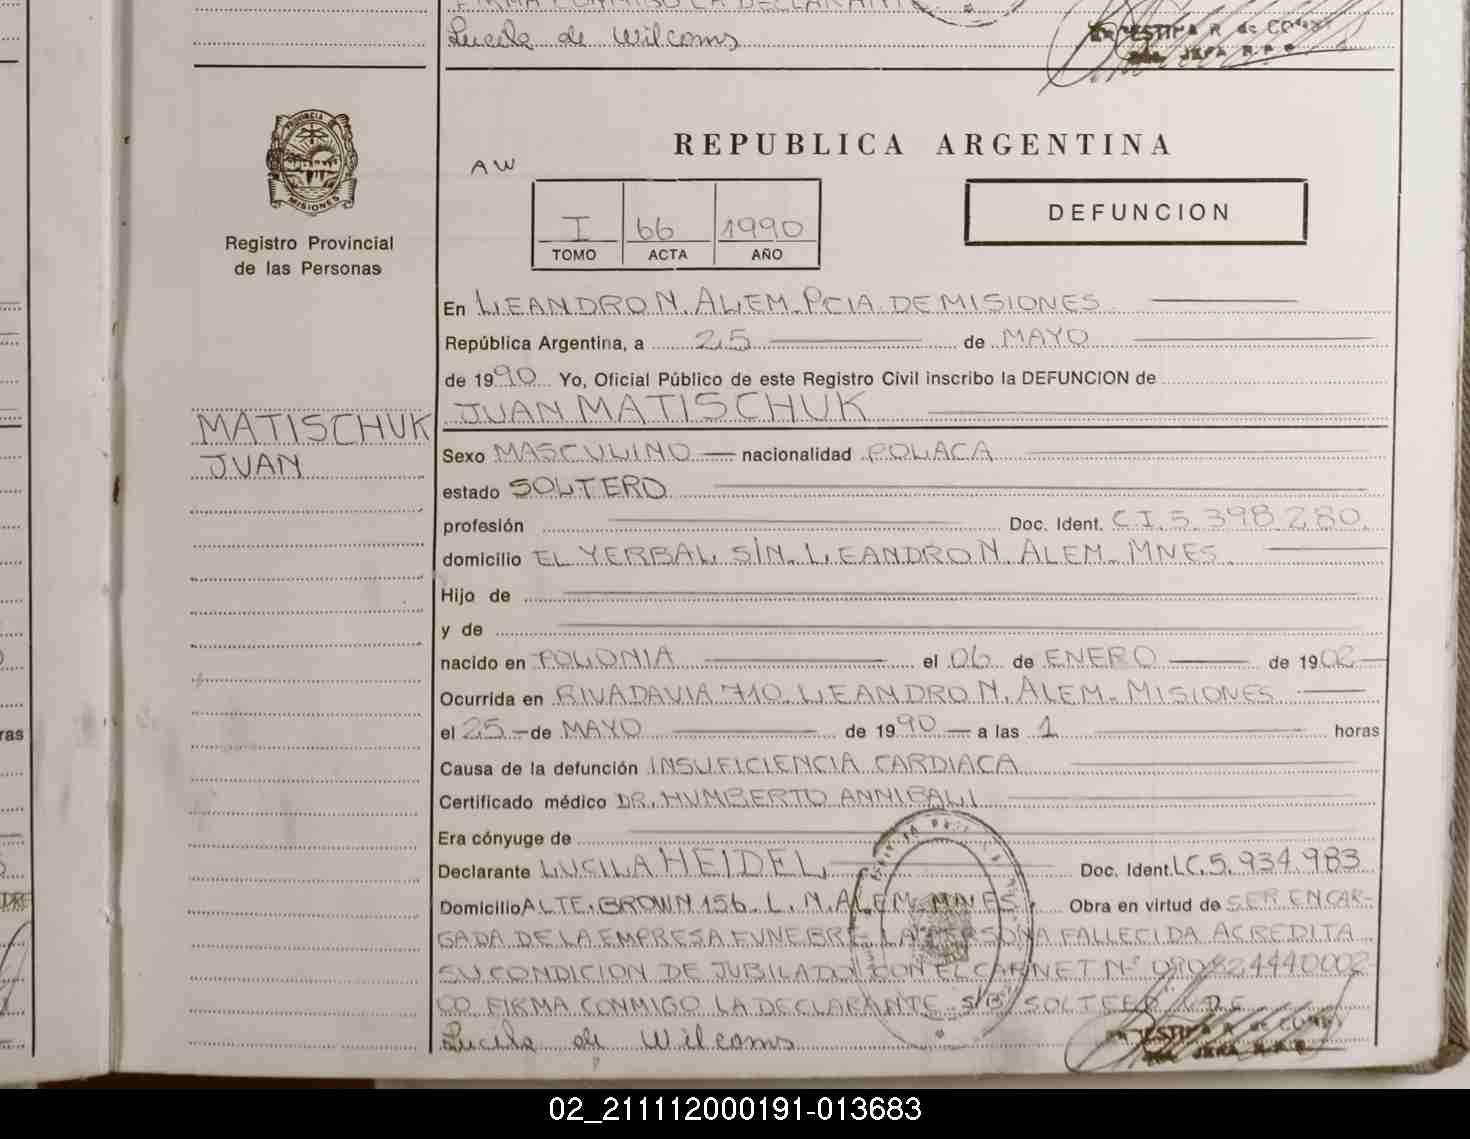 FIRMA CONMIGO LA DECLARANTE
Lucila de Wilcoms
ERNESTINA R. de
JEFA R.P.P.
PROVINCIA DE
MISIONES
Registro Provincial
de las Personas
MATISCHUK
JUAN
AW
REPUBLICA ARGENTINA
I 66 1990
TOMO ACTA AÑO
DEFUNCION
En LEANDRO N. ALEM. PCIA. DE MISIONES
República Argentina, a 25 de MAYO
de 1990 Yo, Oficial Público de este Registro Civil inscribo la DEFUNCION de
JUAN MATISCHUK
Sexo MASCULINO nacionalidad POLACA
estado SOLTERO
profesión Doc. Ident. C.I.5.398.280.
domicilio EL YERBAL S/N. LEANDRO N. ALEM. MNES.
Hijo de
y de
nacido en POLONIA el 06 de ENERO de 1902
Ocurrida en RIVADAVIA 710. LEANDRO N. ALEM. MISIONES
el 25 de MAYO de 1990 a las 1 horas
Causa de la defunción INSUFICIENCIA CARDIACA
Certificado médico DR. HUMBERTO ANNIBALI
Era cónyuge de
Declarante LUCILA HEIDEL Doc. Ident. LC.5.934.983
Domicilio ALTE. BROWN 156. L. N. ALEM. MNES. Obra en virtud de SER ENCAR-
GADA DE LA EMPRESA FUNEBRE. LA PERSONA FALLECIDA ACREDITA
SU CONDICION DE JUBILADO CON EL CARNET Nº 090824440002
CO FIRMA CONMIGO LA DECLARANTE. S/B/ SOLTERO
Lucila de Wilcoms
JEFA R.P.P.
02_211112000191-013683